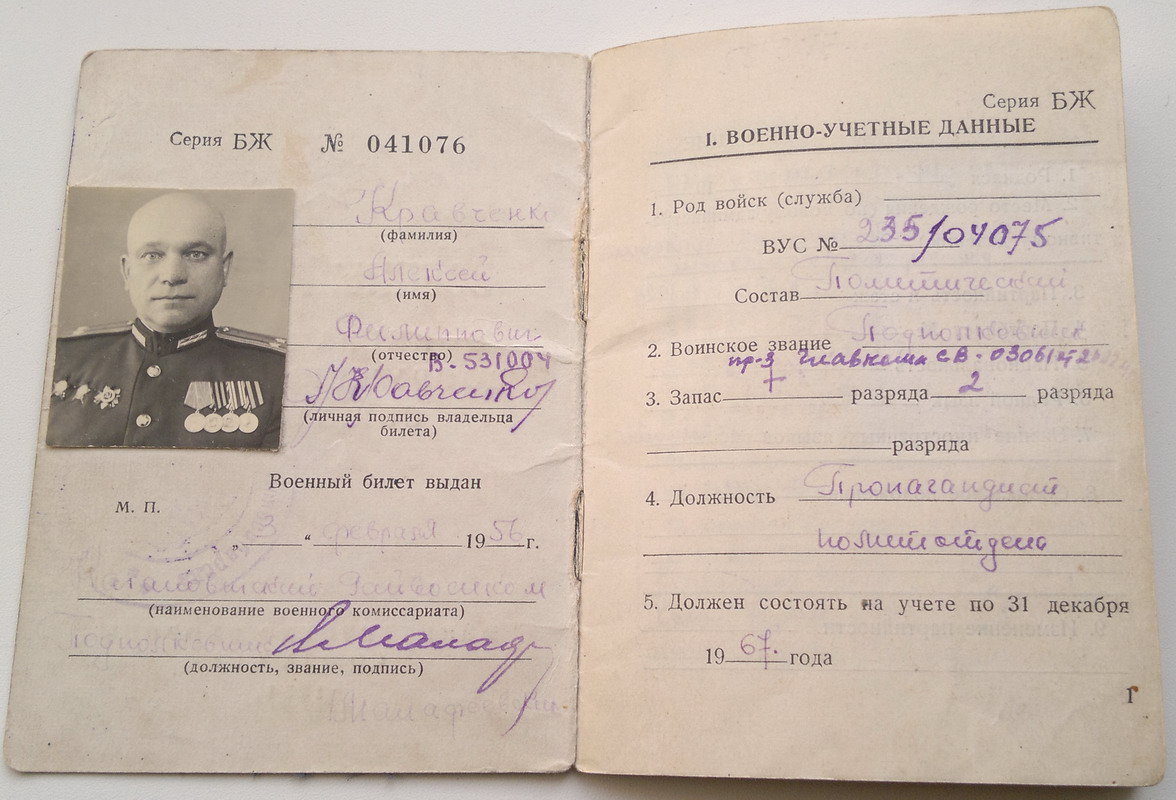 Серия БЖ № 041076
Кравченк
(фамилия)
Алексей
(имя)
Филиппович
(отчество)
В-531004
(личная подпись владельца
билета)
Военный билет выдан
М. П.
„ 3 “ февраля 1956 г.
Райвоенком
(наименование военного комиссариата)
подполковник
(должность, звание, подпись)
Серия БЖ
I. ВОЕННО-УЧЕТНЫЕ ДАННЫЕ
1. Род войск (служба)
ВУС № 235/04075
Состав Политический
2. Воинское звание Подполковник
пр-з Главкома СВ-0306
3. Запас разряда 2 разряда
разряда
4. Должность Пропагандист
политотдела
5. Должен состоять на учете по 31 декабря
1967. года
1